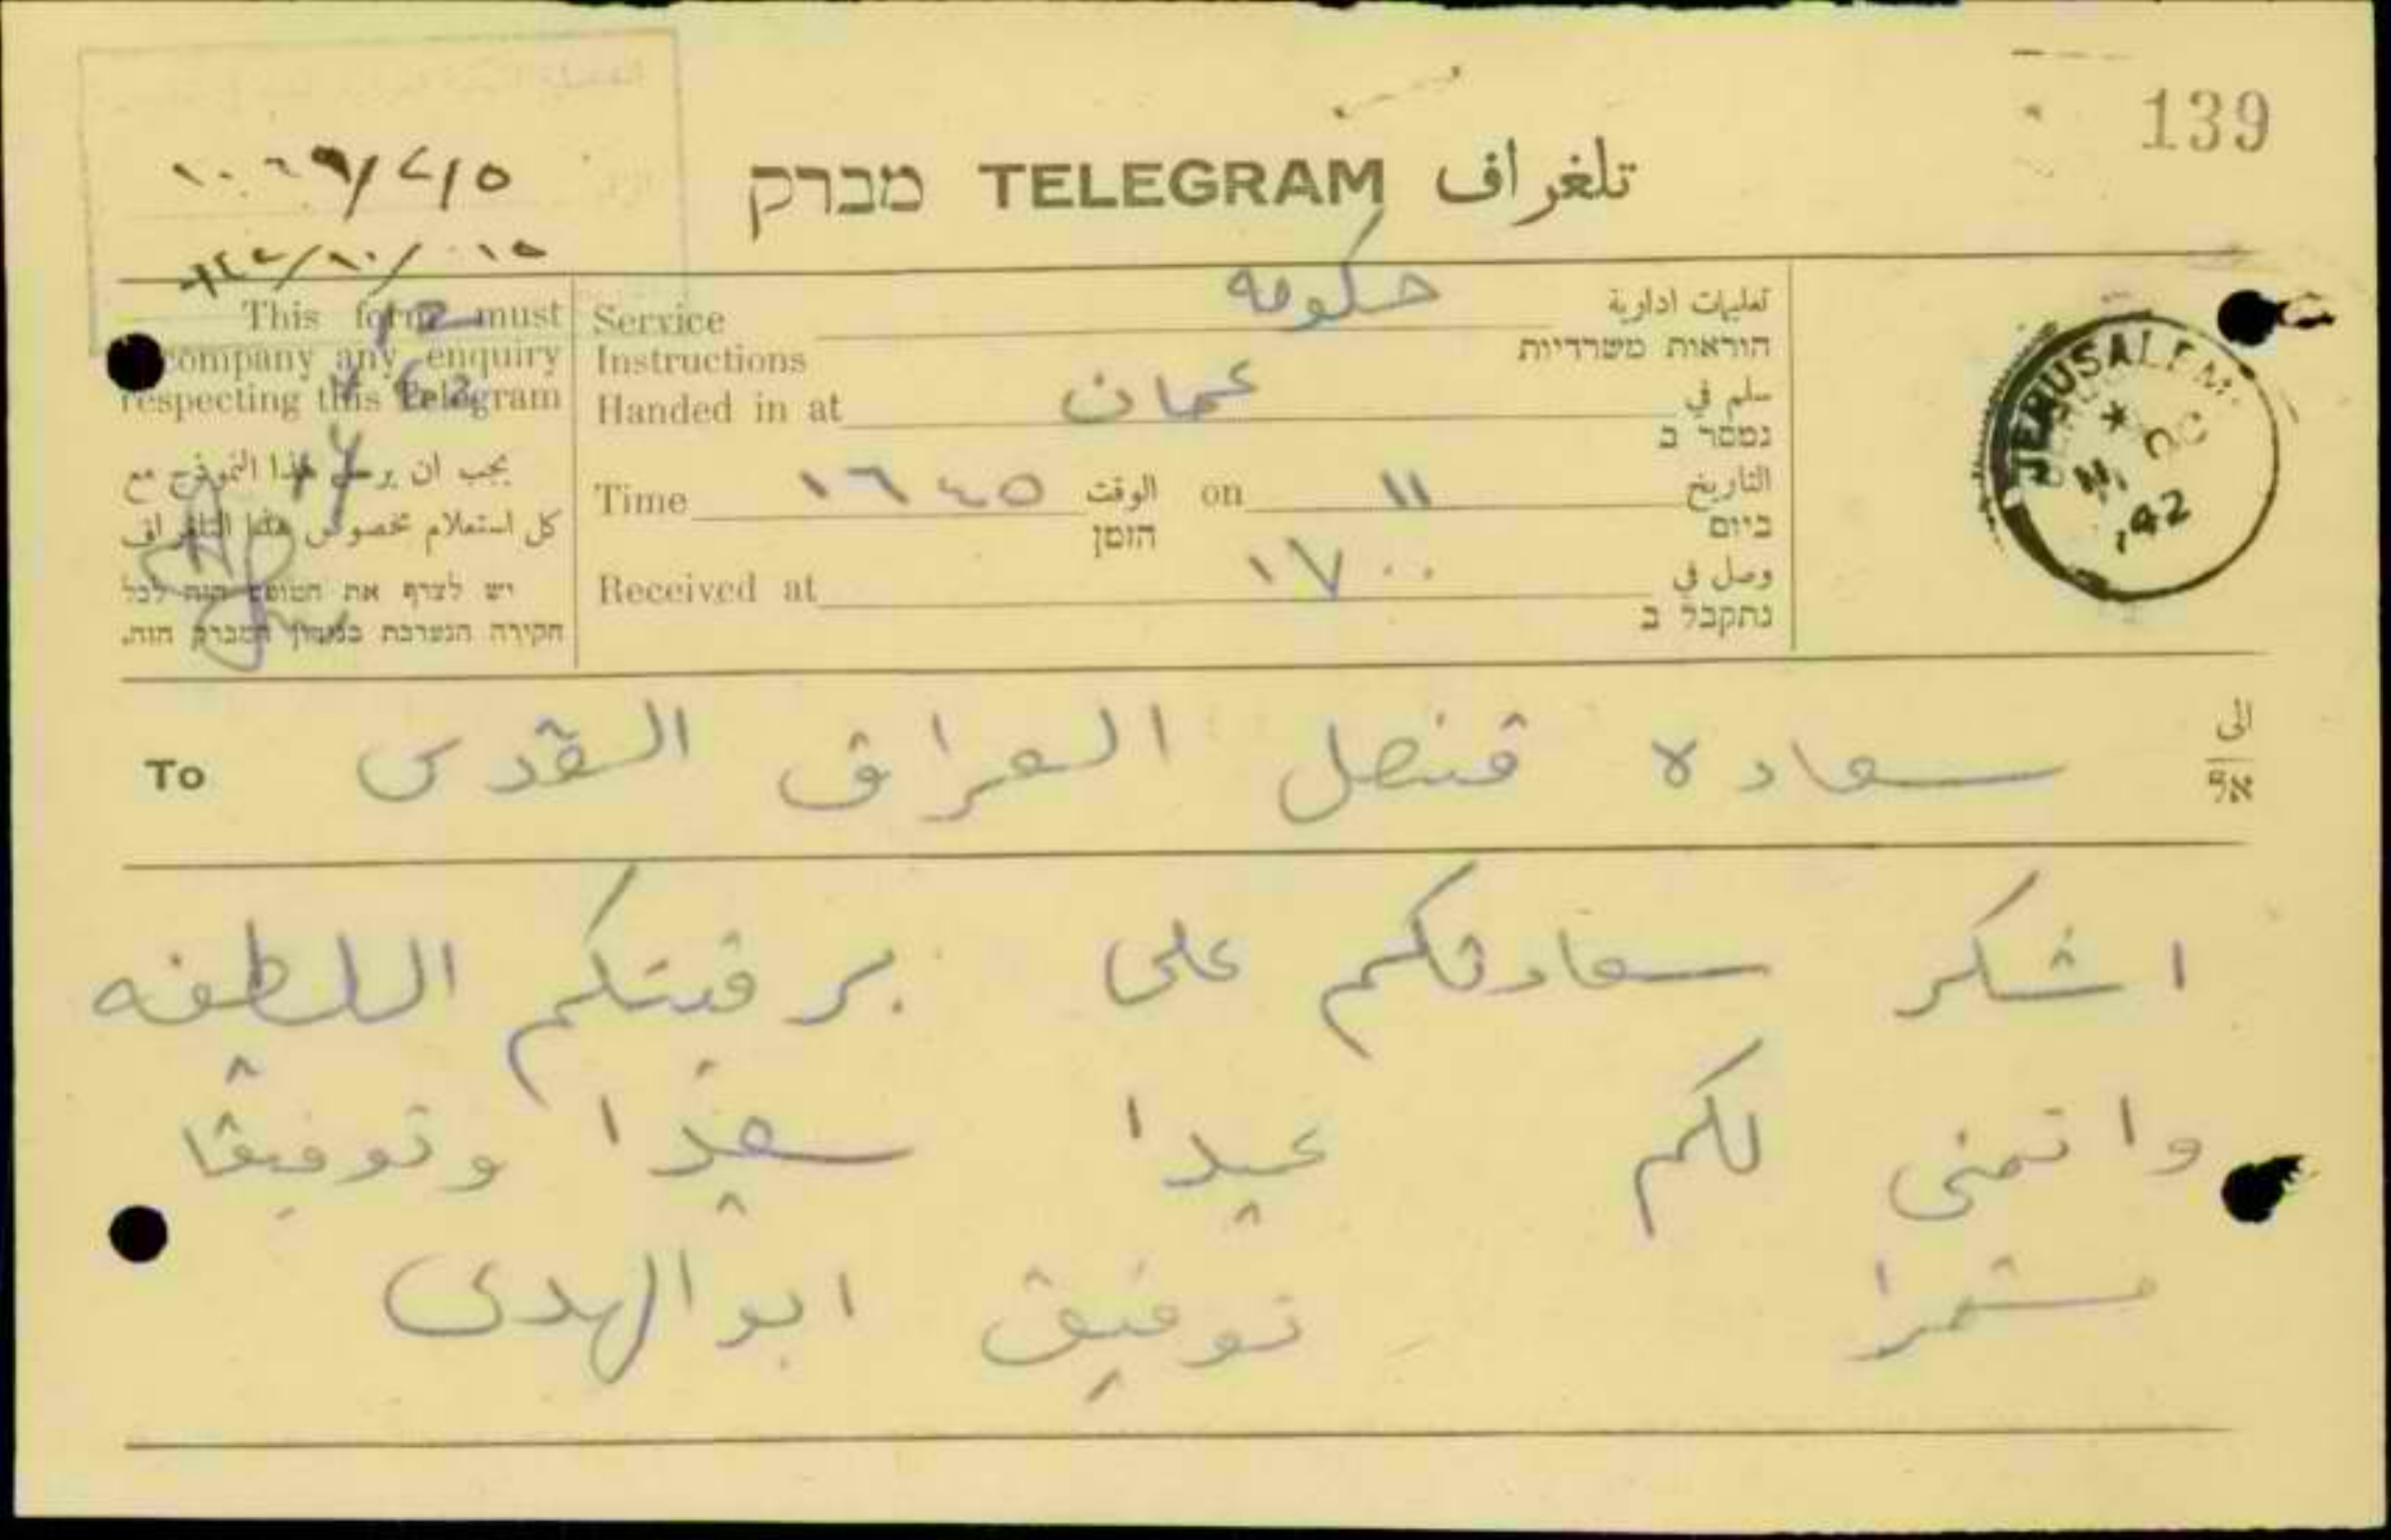 139
תלغراف TELEGRAM מברק
This form must
company any enquiry
respecting this Telegram
يجب ان يرسل هذا النموذج مع
كل استعلام بخصوص هذا التلغراف
יש לצרף את הטופס הזה לכל
חקירה הנערכת בנדון המברק הזה.
Service حكومه تعليمات ادارية
Instructions הוראות משרדיות
Handed in at عمان سلم في
נמסר ב
Time ١٦٤٥ الوقت on ١١ التاريخ
הזמן ביום
Received at ١٧٠٠ وصل في
נתקבל ב
JERUSALEM
OC
42
To سعاده قنصل العراق القدس الى
אל
اشكر سعادتكم على برقيتكم اللطيفه
واتمنى لكم عيدا سعيدا وتوفيقا
مستمرا توفيق ابو الهدى